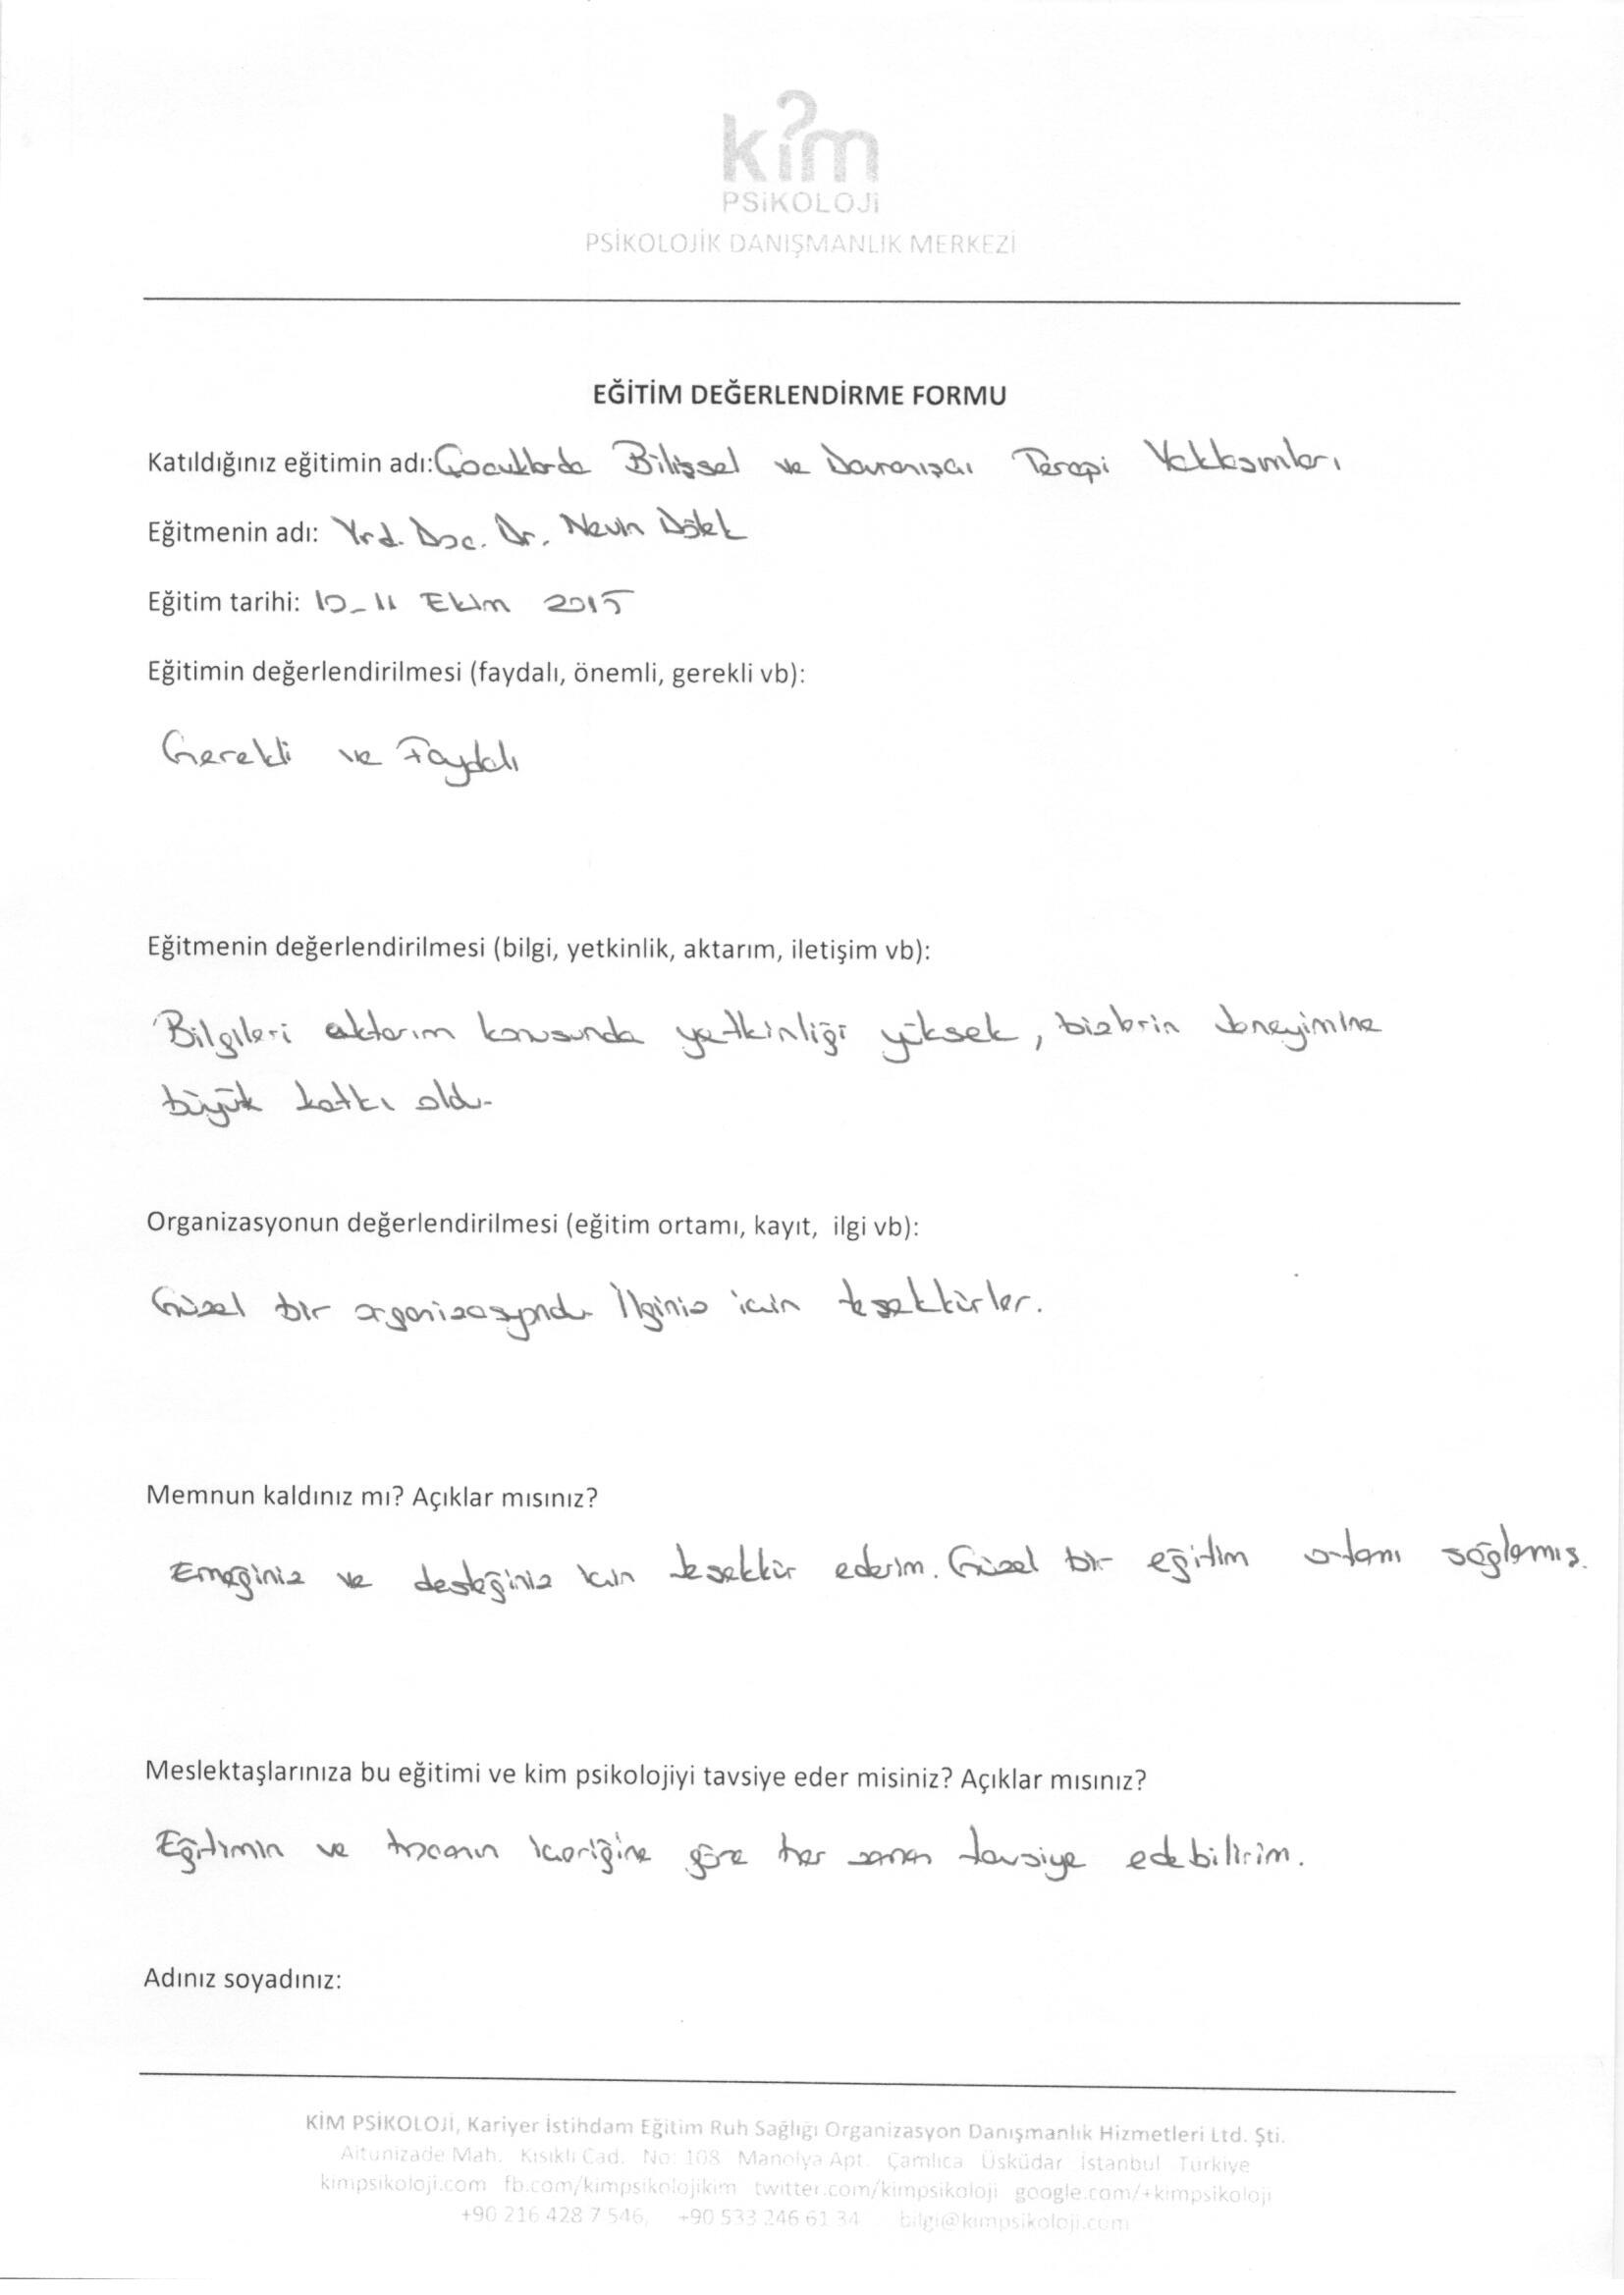 kim
PSiKOLOJi
PSİKOLOJİK DANIŞMANLIK MERKEZİ
EĞİTİM DEĞERLENDİRME FORMU
Katıldığınız eğitimin adı: Çocuklarda Bilişsel ve Davranışçı Terapi Yaklaşımları
Eğitmenin adı: Yrd. Doc. Dr. Nevin Dölek
Eğitim tarihi: 10-11 Ekim 2015
Eğitimin değerlendirilmesi (faydalı, önemli, gerekli vb):
Gerekli ve Faydalı
Eğitmenin değerlendirilmesi (bilgi, yetkinlik, aktarım, iletişim vb):
Bilgileri aktarım konusunda yetkinliği yüksek, bizlerin deneyimine
büyük katkı oldu.
Organizasyonun değerlendirilmesi (eğitim ortamı, kayıt, ilgi vb):
Güzel bir organizasyondu. İlginiz için teşekkürler.
Memnun kaldınız mı? Açıklar mısınız?
Emeğiniz ve desteğiniz için teşekkür ederim. Güzel bir eğitim ortamı sağlamış.
Meslektaşlarınıza bu eğitimi ve kim psikolojiyi tavsiye eder misiniz? Açıklar mısınız?
Eğitimin ve hocanın içeriğine göre her zaman tavsiye edebilirim.
Adınız soyadınız:
KİM PSİKOLOJİ, Kariyer İstihdam Eğitim Ruh Sağlığı Organizasyon Danışmanlık Hizmetleri Ltd. Şti.
Altunizade Mah. Kısıklı Cad. No: 108 Manolya Apt. Çamlıca Üsküdar İstanbul Türkiye
kimpsikoloji.com fb.com/kimpsikolojikim twitter.com/kimpsikoloji google.com/+kimpsikoloji
+90 216 428 7 546, +90 533 246 61 34 bilgi@kimpsikoloji.com